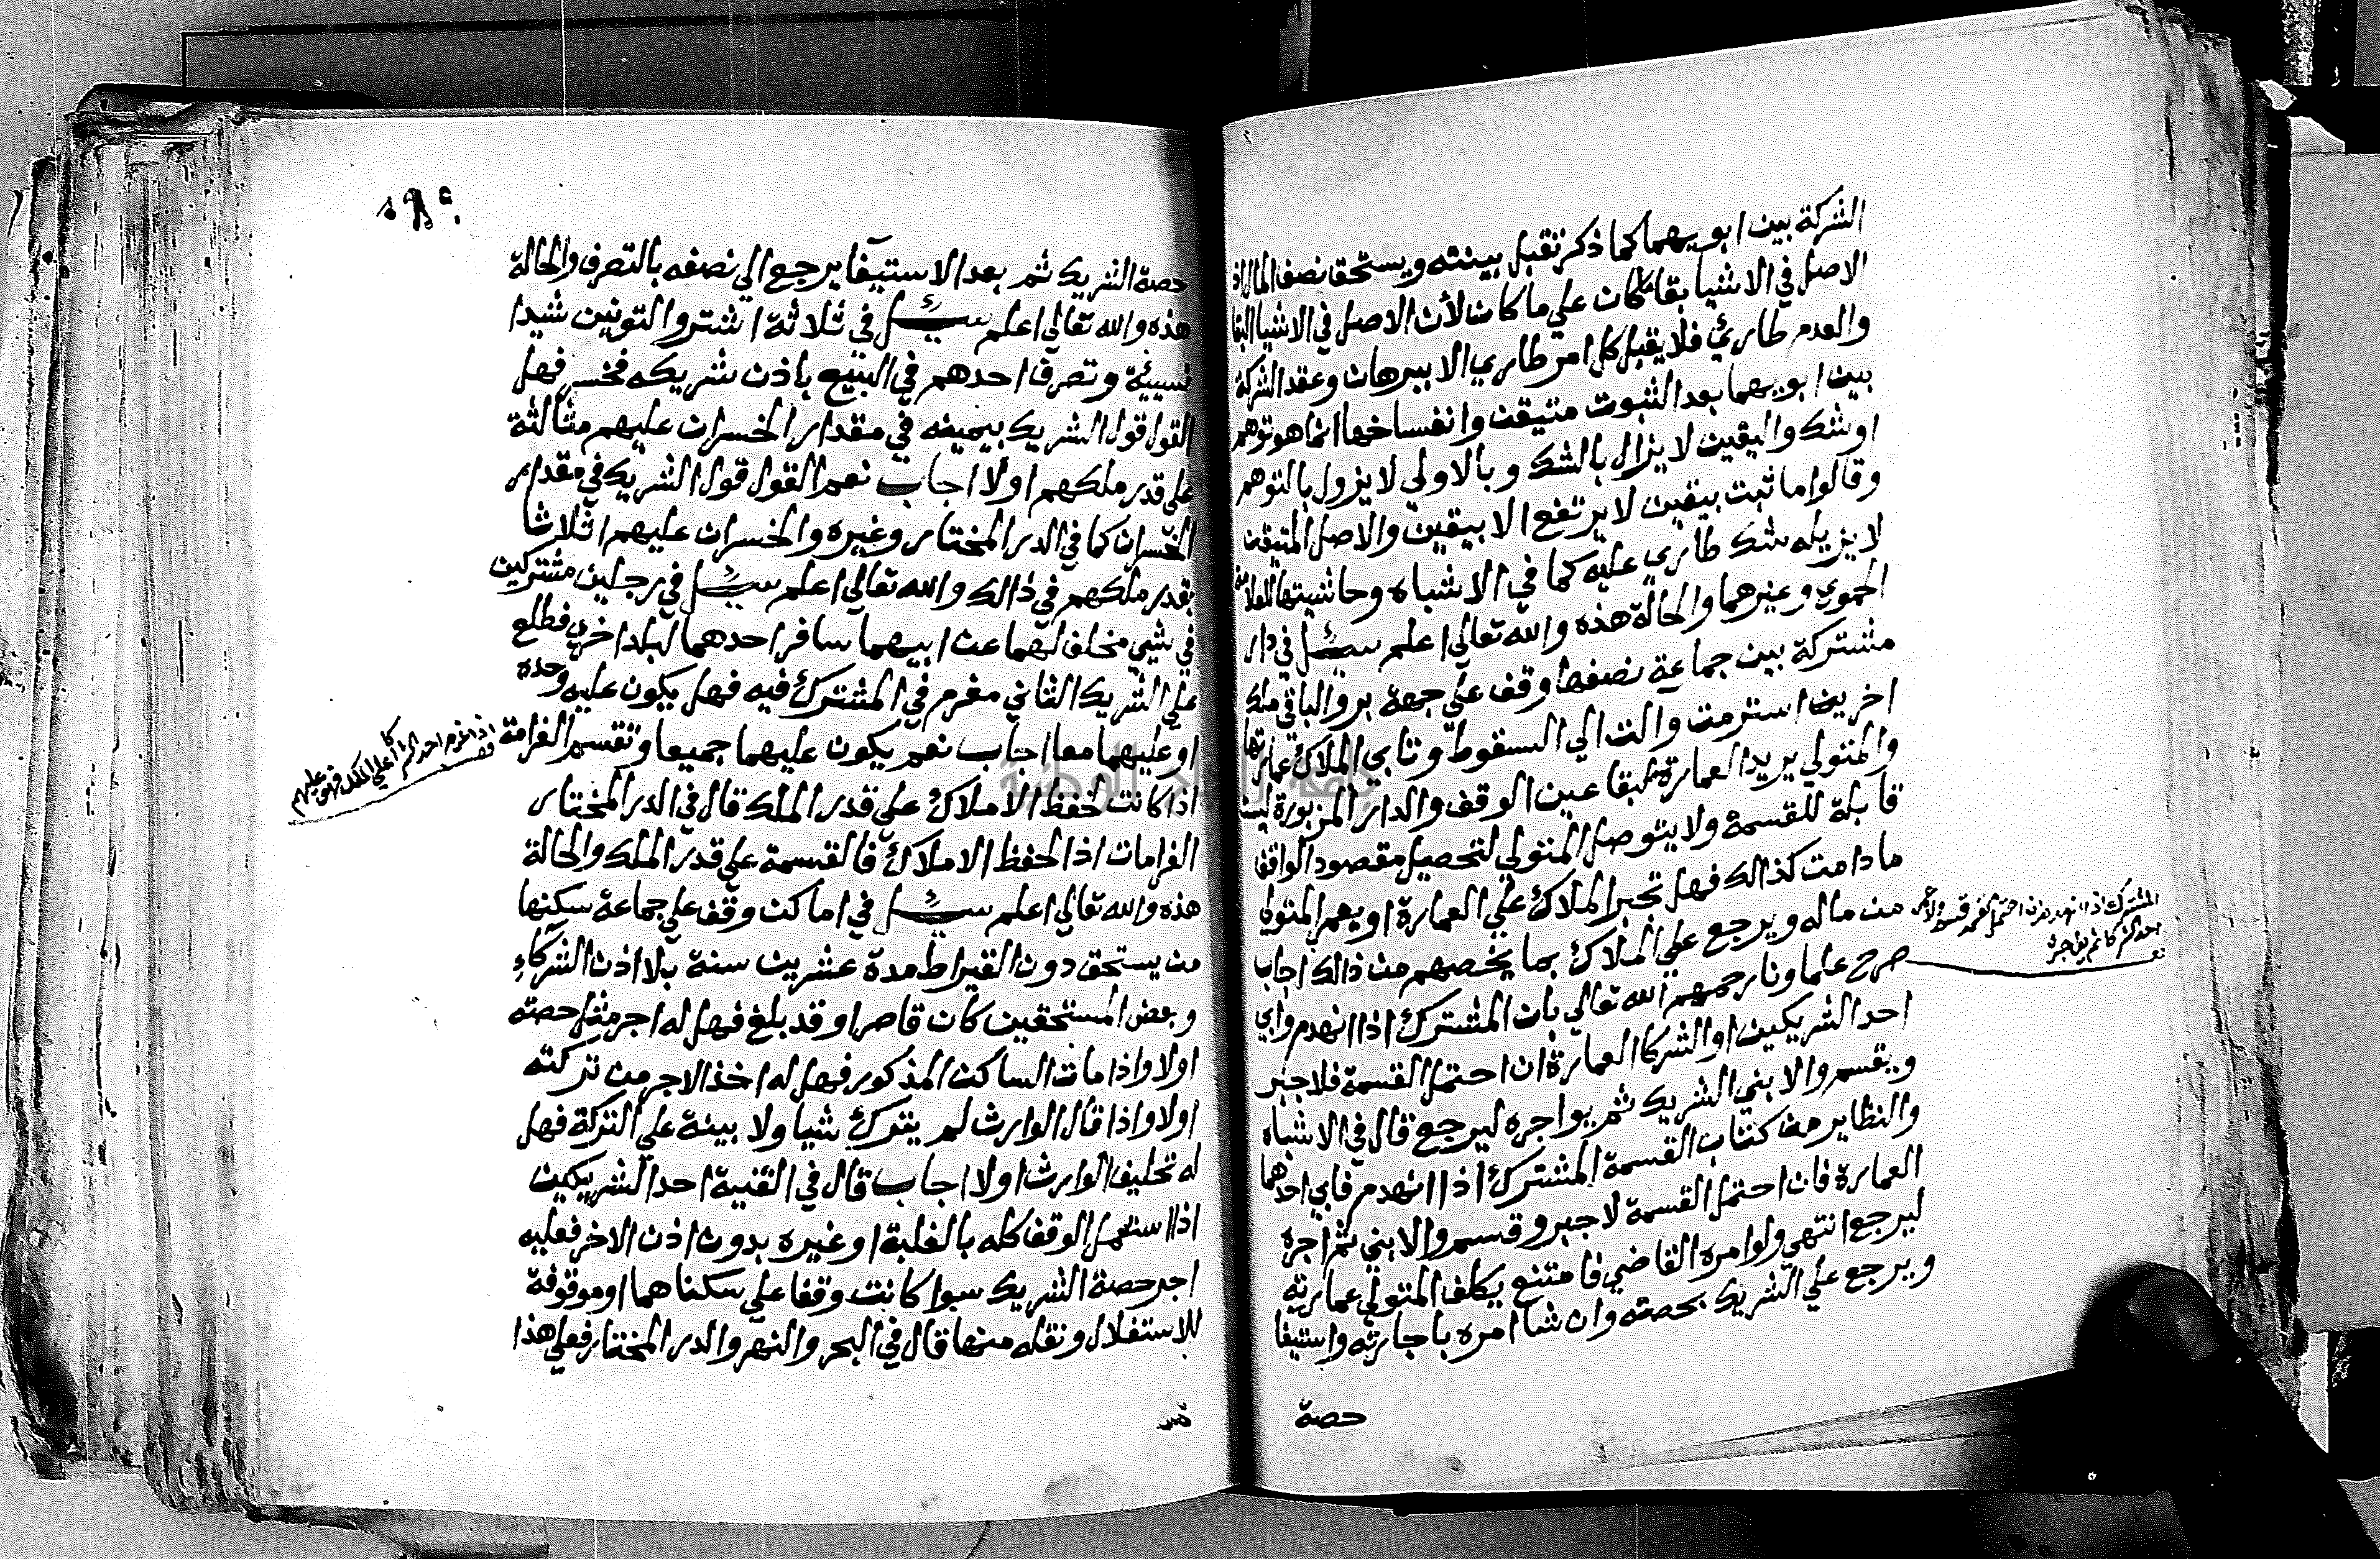 الشركة بين ابويهما كما ذكر تقبل بينته ويستحق نصف المال اذ
الاصل في الاشيا بقا ما كان علي ما كان لأن الاصل في الاشيا البقا
والعدم طارئ فلا يقبل كل امر طاري الا ببرهان وعقد الشركة
بين ابويهما بعد الثبوت متيقن وانفساخها انما هو توهم
او شك واليقين لا يزال بالشك وبالاولي لا يزول بالتوهم
وقالوا ما ثبت بيقين لا يرتفع الا بيقين والاصل المتيقن
لا يزيله شك طاري عليه كما في الاشباه وحاشيتها للعلامة
الحموي وغيرهما والحالة هذه والله تعالي اعلم سئل في دار
مشتركة بين جماعة نصفها وقف علي جهة بر والباقي ملك
اخرين استرمت والت الي السقوط وتابي الملاك عمارتها
والمتولي يريد العمارة لبقا عين الوقف والدار المزبورة ليست
قابلة للقسمة ولا يتوصل المتولي لتحصيل مقصود الواقف
ما دامت كذالك فهل تجبر الملاك علي العمارة او يعمر المتولي
من ماله ويرجع علي الملاك بما يخصهم من ذالك اجاب
صرح علماونا رحمهم الله تعالي بان المشترك اذا انهدم وابي
احد الشريكين او الشركا العمارة ان احتمل القسمة فلا جبر
ويقسم والا بني الشريك ثم يواجره ليرجع قال في الاشباه
والنظاير من كتاب القسمة المشترك اذا انهدم فابي احدهما
العمارة فان احتمل القسمة لا جبر وقسم والا بني ثم اجره
ليرجع انتهي ولو امره القاضي فامتنع يكلف المتولي عمارته
ويرجع علي الشريك بحصته وان شا امره باجارته واستيفا
حصة
المشترك اذا انهدم
احد الشركا
حصة الشريك ثم بعد الاستيفا يرجع الي نصفه بالتصرف والحالة
هذه والله تعالي اعلم سئل في ثلاثة اشتروا لتونين شيدا
نسيئة وتصرف احدهم في البيع باذن شريكه فخسر فهل
القول قول الشريك بيمينه في مقدار الخسران عليهم مثالثة
علي قدر ملكهم اولا اجاب نعم القول قول الشريك في مقدار
الخسران كما في الدر المختار وغيره والخسران عليهم اثلاثا
بقدر ملكهم في ذالك والله تعالي اعلم سئل في رجلين مشتركين
في شيي مخلف لهما عن ابيهما سافر احدهما لبلد اخري فطلع
علي الشريك الثاني مغرم في المشترك فيه فهل يكون عليه وحده
او عليهما معا اجاب نعم يكون عليهما جميعا وتقسم الغرامة
اذا كانت لحفظ الاملاك علي قدر الملك قال في الدر المختار
الغرامات اذا لحفظ الاملاك فالقسمة علي قدر الملك والحالة
هذه والله تعالي اعلم سئل في اماكن وقف علي جماعة سكنها
من يستحق دون القيراط مدة عشرين سنة بلا اذن الشركاء
وبعض المستحقين كان قاصرا وقد بلغ فهل له اجر مثل حصته
اولا واذا مات الساكن المذكور فهل له اخذ الاجر من تركته
اولا واذا قال الوارث لم يترك شيا ولا بينة علي التركة فهل
له تحليف الوارث اولا اجاب قال في القنية احد الشريكين
اذا استعمل الوقف كله بالغلبة او غيره بدون اذن الاخر فعليه
اجر حصة الشريك سوا كانت وقفا علي سكناهما او موقوفة
للاستغلال ونقله منها قال في البحر والنهر والدر المختار فعلي هذا
اذا غرم احد الشركا علي الملك فهو عليهم